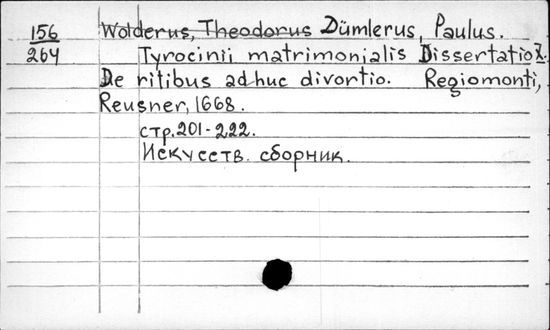 156 Wolderus, Theodorus Dümlerus, Paulus.
264 Tyrocinii matrimonialis Dissertatio X.
De ritibus adhuc divortio. Regiomonti,
Reusner, 1668.
стр. 201-222.
Искусств. сборник.